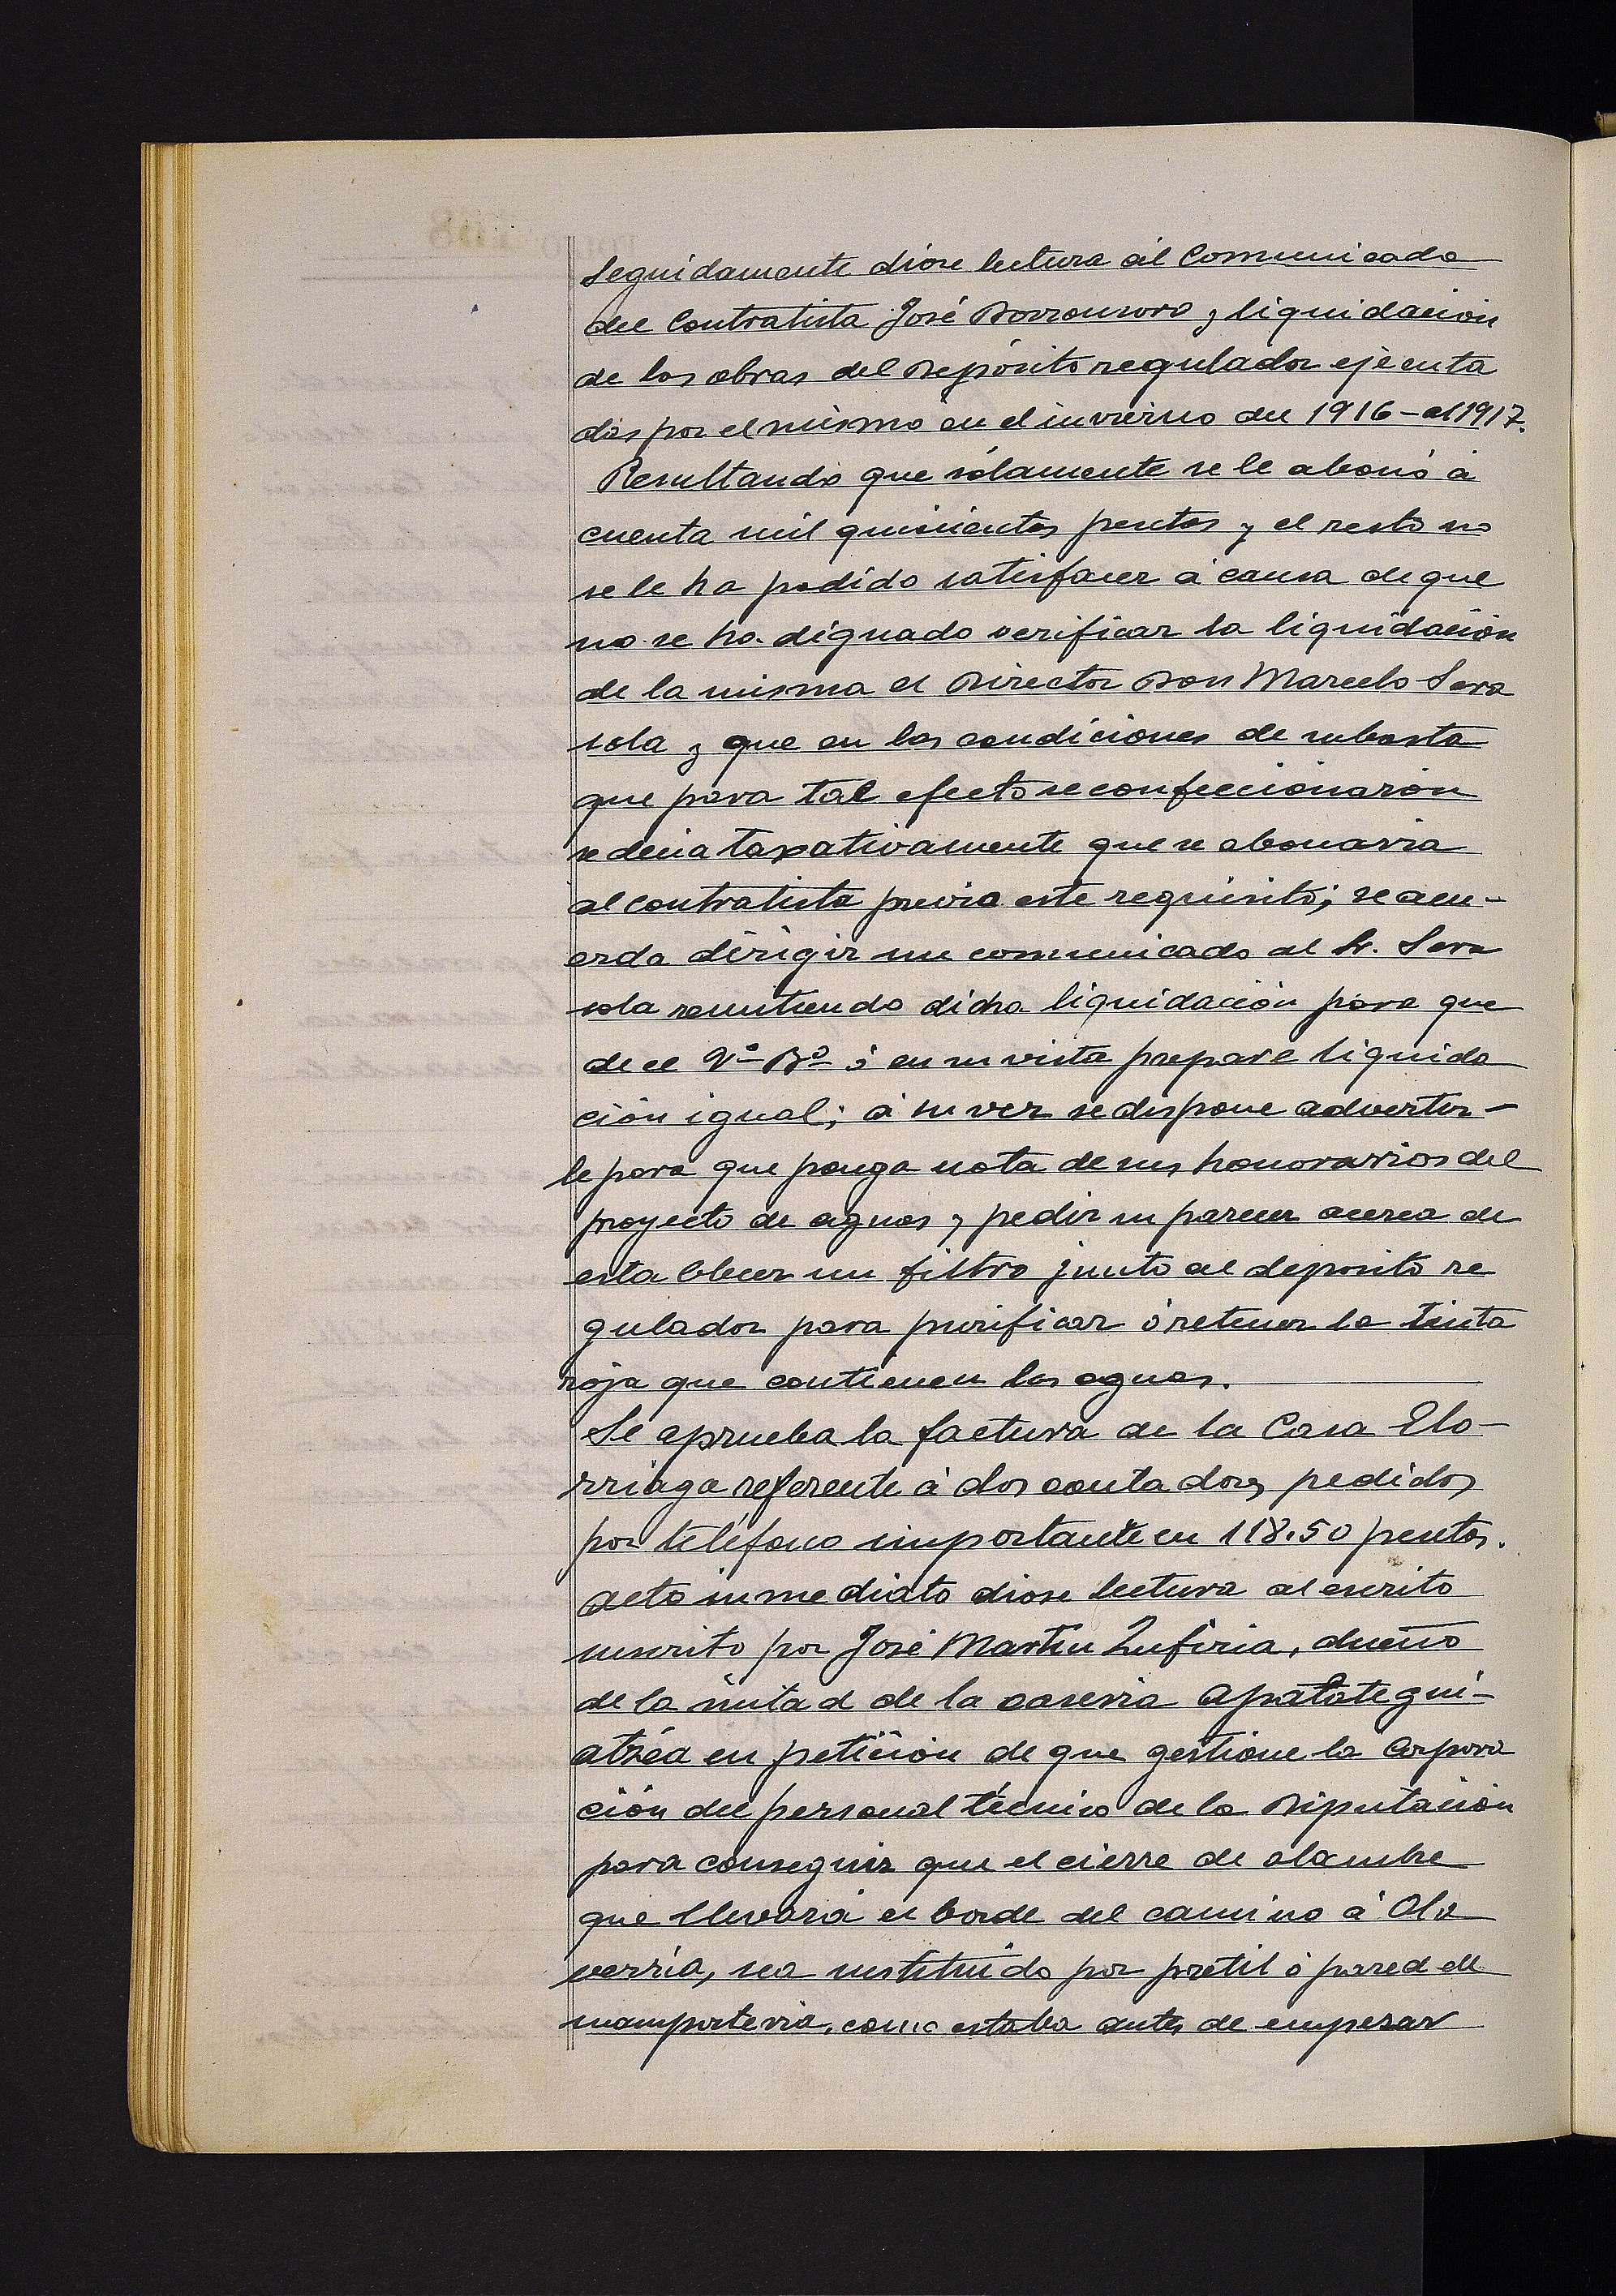 Seguidamente dióse lectura ál Comunicado
del Contratista José Dorronsoro y liquidación
de las obras del Depósito regulador ejecuta
das por el mismo en el invierno del 1916-al 1917.
Resultando que sólamente se le abonó á
cuenta mil quinientas pesetas y el resto no
se le ha podido satisfacer á causa de que
no se ha dignado verificar la liquidación
de la misma el Director Don Marcelo Sara
sola y que en las condiciones de subasta
que para tal efecto se confeccionarón
se decia taxativamente que se abonaria
al contratista previo este requisito; se acu-
erda dirigir un comunicado al Sr. Sara
sola remitiendo dicha liquidación para que
de el Vº Bº ó en su vista prepare liquida
ción igual; á su vez se dispone advertir-
le para que ponga nota de sus honorarios del
proyecto de aguas y pedir su parecer acerca de
establecer un filtro junto al deposito re
gulador para purificar ó retener la tinta
roja que contienen las aguas.
Se aprueba la factura de la Casa Elo-
rriaga referente á dos contadores pedidos
por teléfono importante en 118.50 pesetas.
Acto inmediato diose lectura al escrito
suscrito por José Martin Zufiria, dueño
de la mitad de la caseria Apalategui-
atzéa en petición de que gestione la Corpora
ción del personal técnico de la Diputación
para conseguir que el cierre de alambre
que llevará el borde del camino á Ola
verria, sea sustituido por pretil ó pared de
mamposteria, como estaba antes de empezar